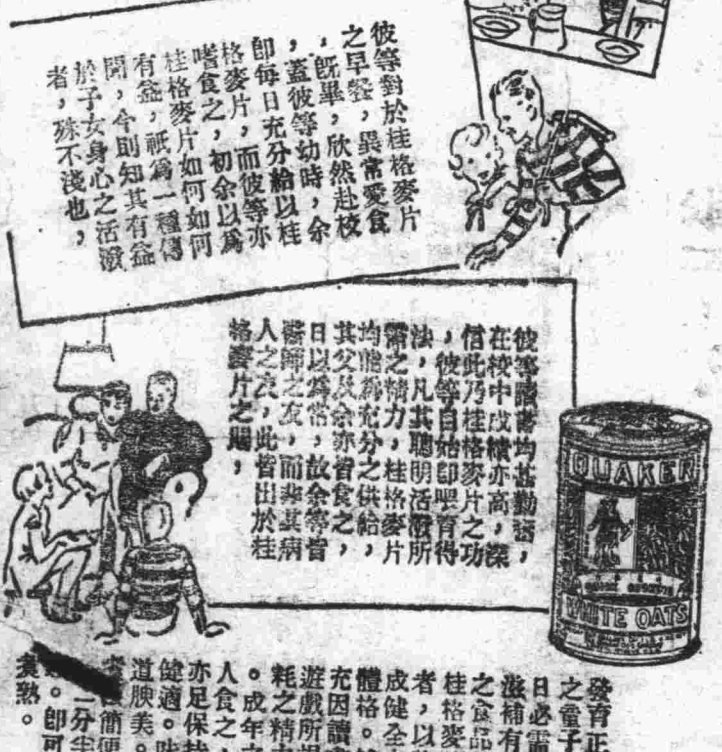 彼等對於桂格麥片
之早餐，異常愛食
，旣畢，欣然赴校
，蓋彼等幼時，余
卽每日充分給以桂
格麥片，而彼等亦
嗜食之，初余以爲
桂格麥片如何如何
有益，祇爲一種傳
聞，今則知其有益
於子女身心之活潑
者，殊不淺也，
彼等讀書均甚勤奮，
在校中成績亦高，深
信此乃桂格麥片之功
，彼等自始卽喂育得
法，凡其聰明活潑所
需之精力，桂格麥片
均能爲充分之供給，
其父及余亦皆食之，
日以爲常，故余等皆
醫師之友，而非其病
人之友，此皆出於桂
格麥片之賜，
QUAKER
WHITE OATS
發育正
之童子
日必需
滋補有
之食品
桂格麥
者，以
成健全
體格。
充因讀
遊戲所
耗之精
。成年
人食之
亦足保
健適。
道腴美。
簡便
二分
。卽可
煑熟。